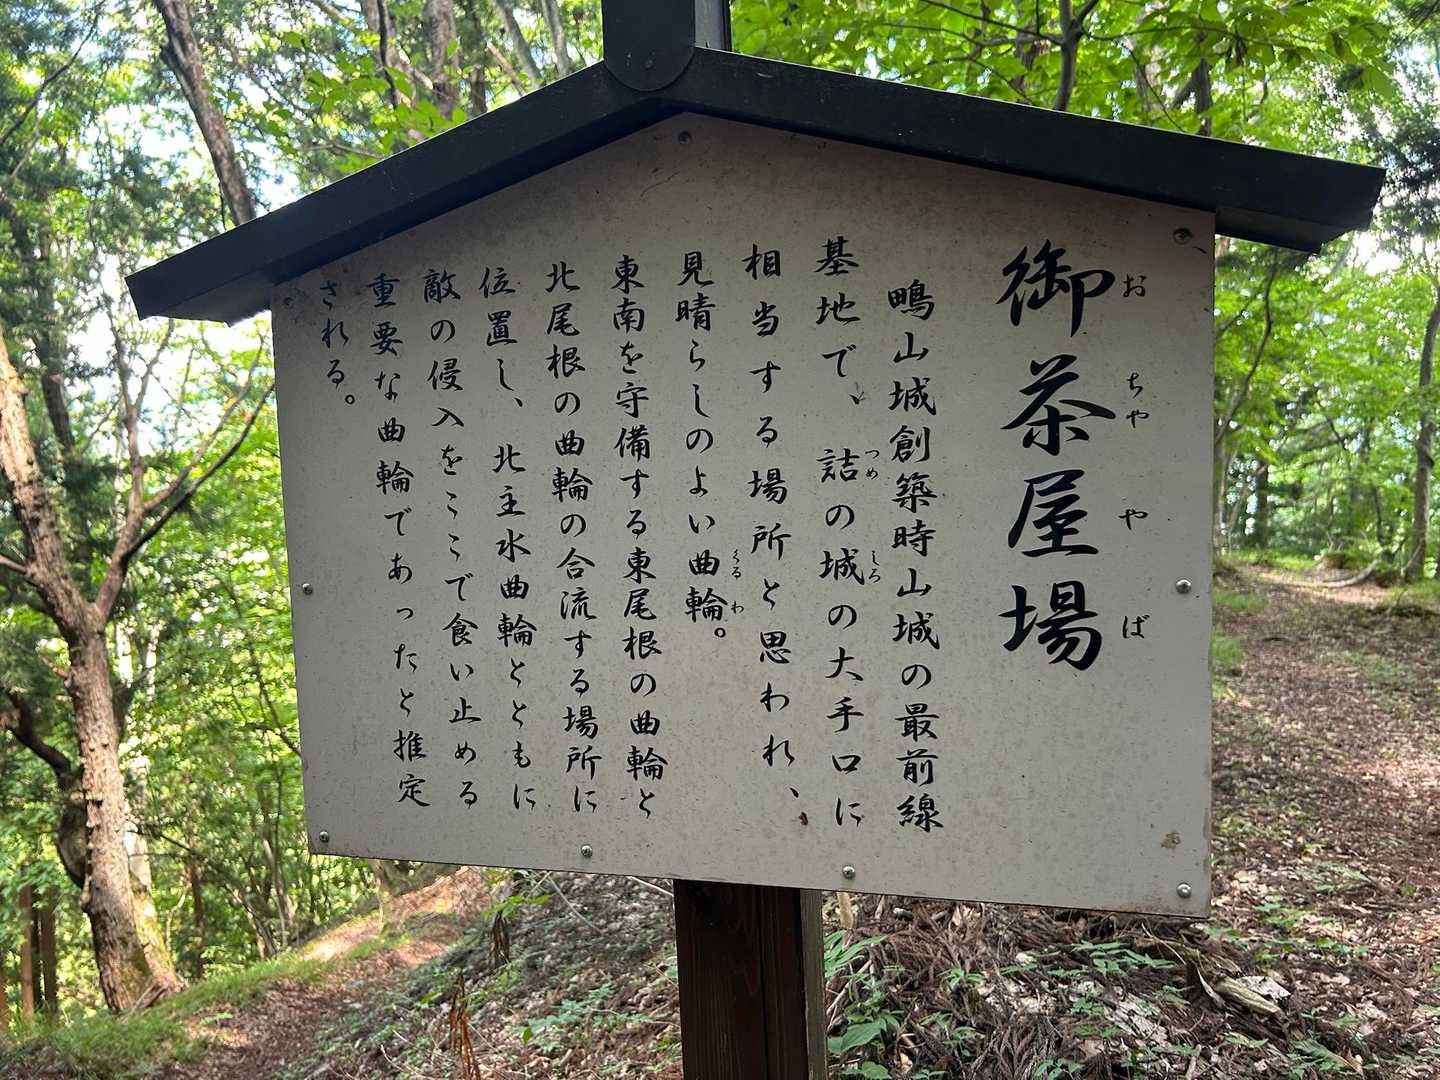 御茶屋場
おちゃやば
鴫山城創築時山城の最前線
基地で、詰の城の大手口に
つめ
しろ
相当する場所と思われ、
見晴らしのよい曲輪。
くるわ
東南を守備する東尾根の曲輪と
北尾根の曲輪の合流する場所に
位置し、北主水曲輪とともに
敵の侵入をここで食い止める
重要な曲輪であったと推定
される。